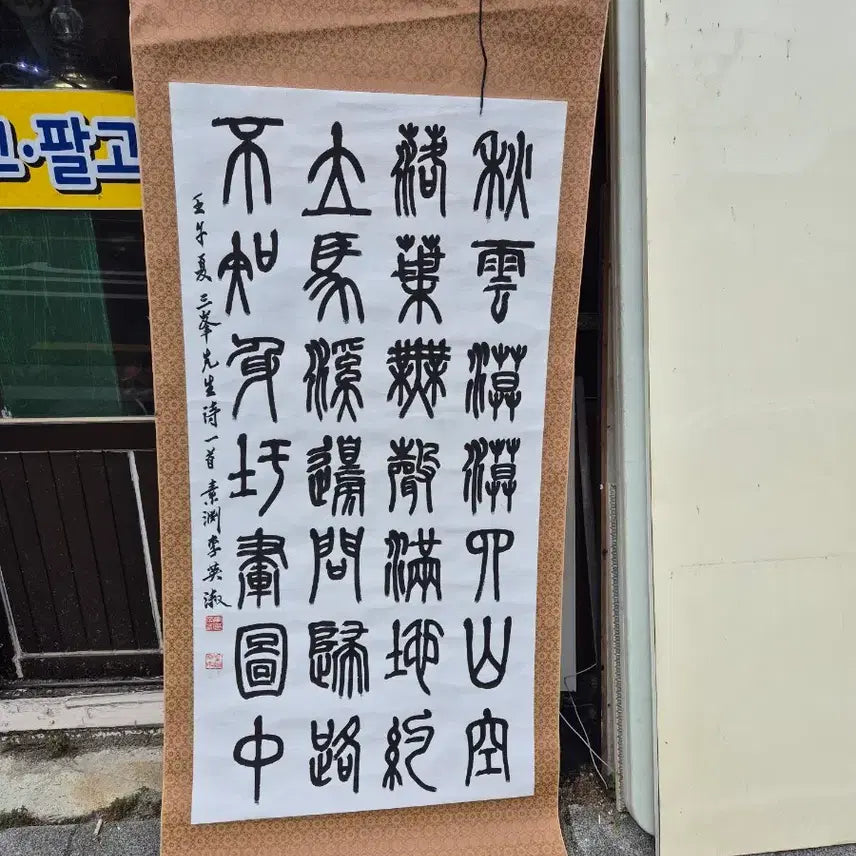 秋雲漠漠四山空
落葉無聲滿地紅
立馬溪邊問歸路
不知身在畫圖中
壬午夏 三峯先生詩一首 素淵 李英淑
·팔고